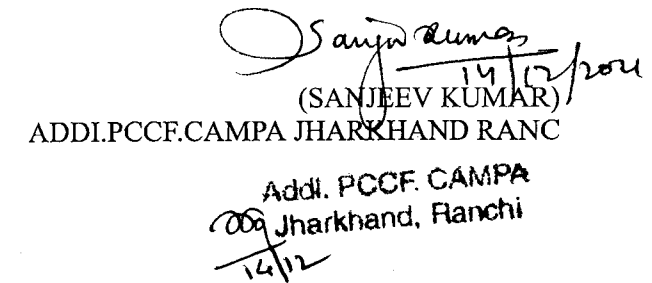 Sanjeev Kumar
14/12/2021
(SANJEEV KUMAR)
ADDI.PCCF.CAMPA JHARKHAND RANC
Addl. PCCF. CAMPA
Jharkhand, Ranchi
14/12